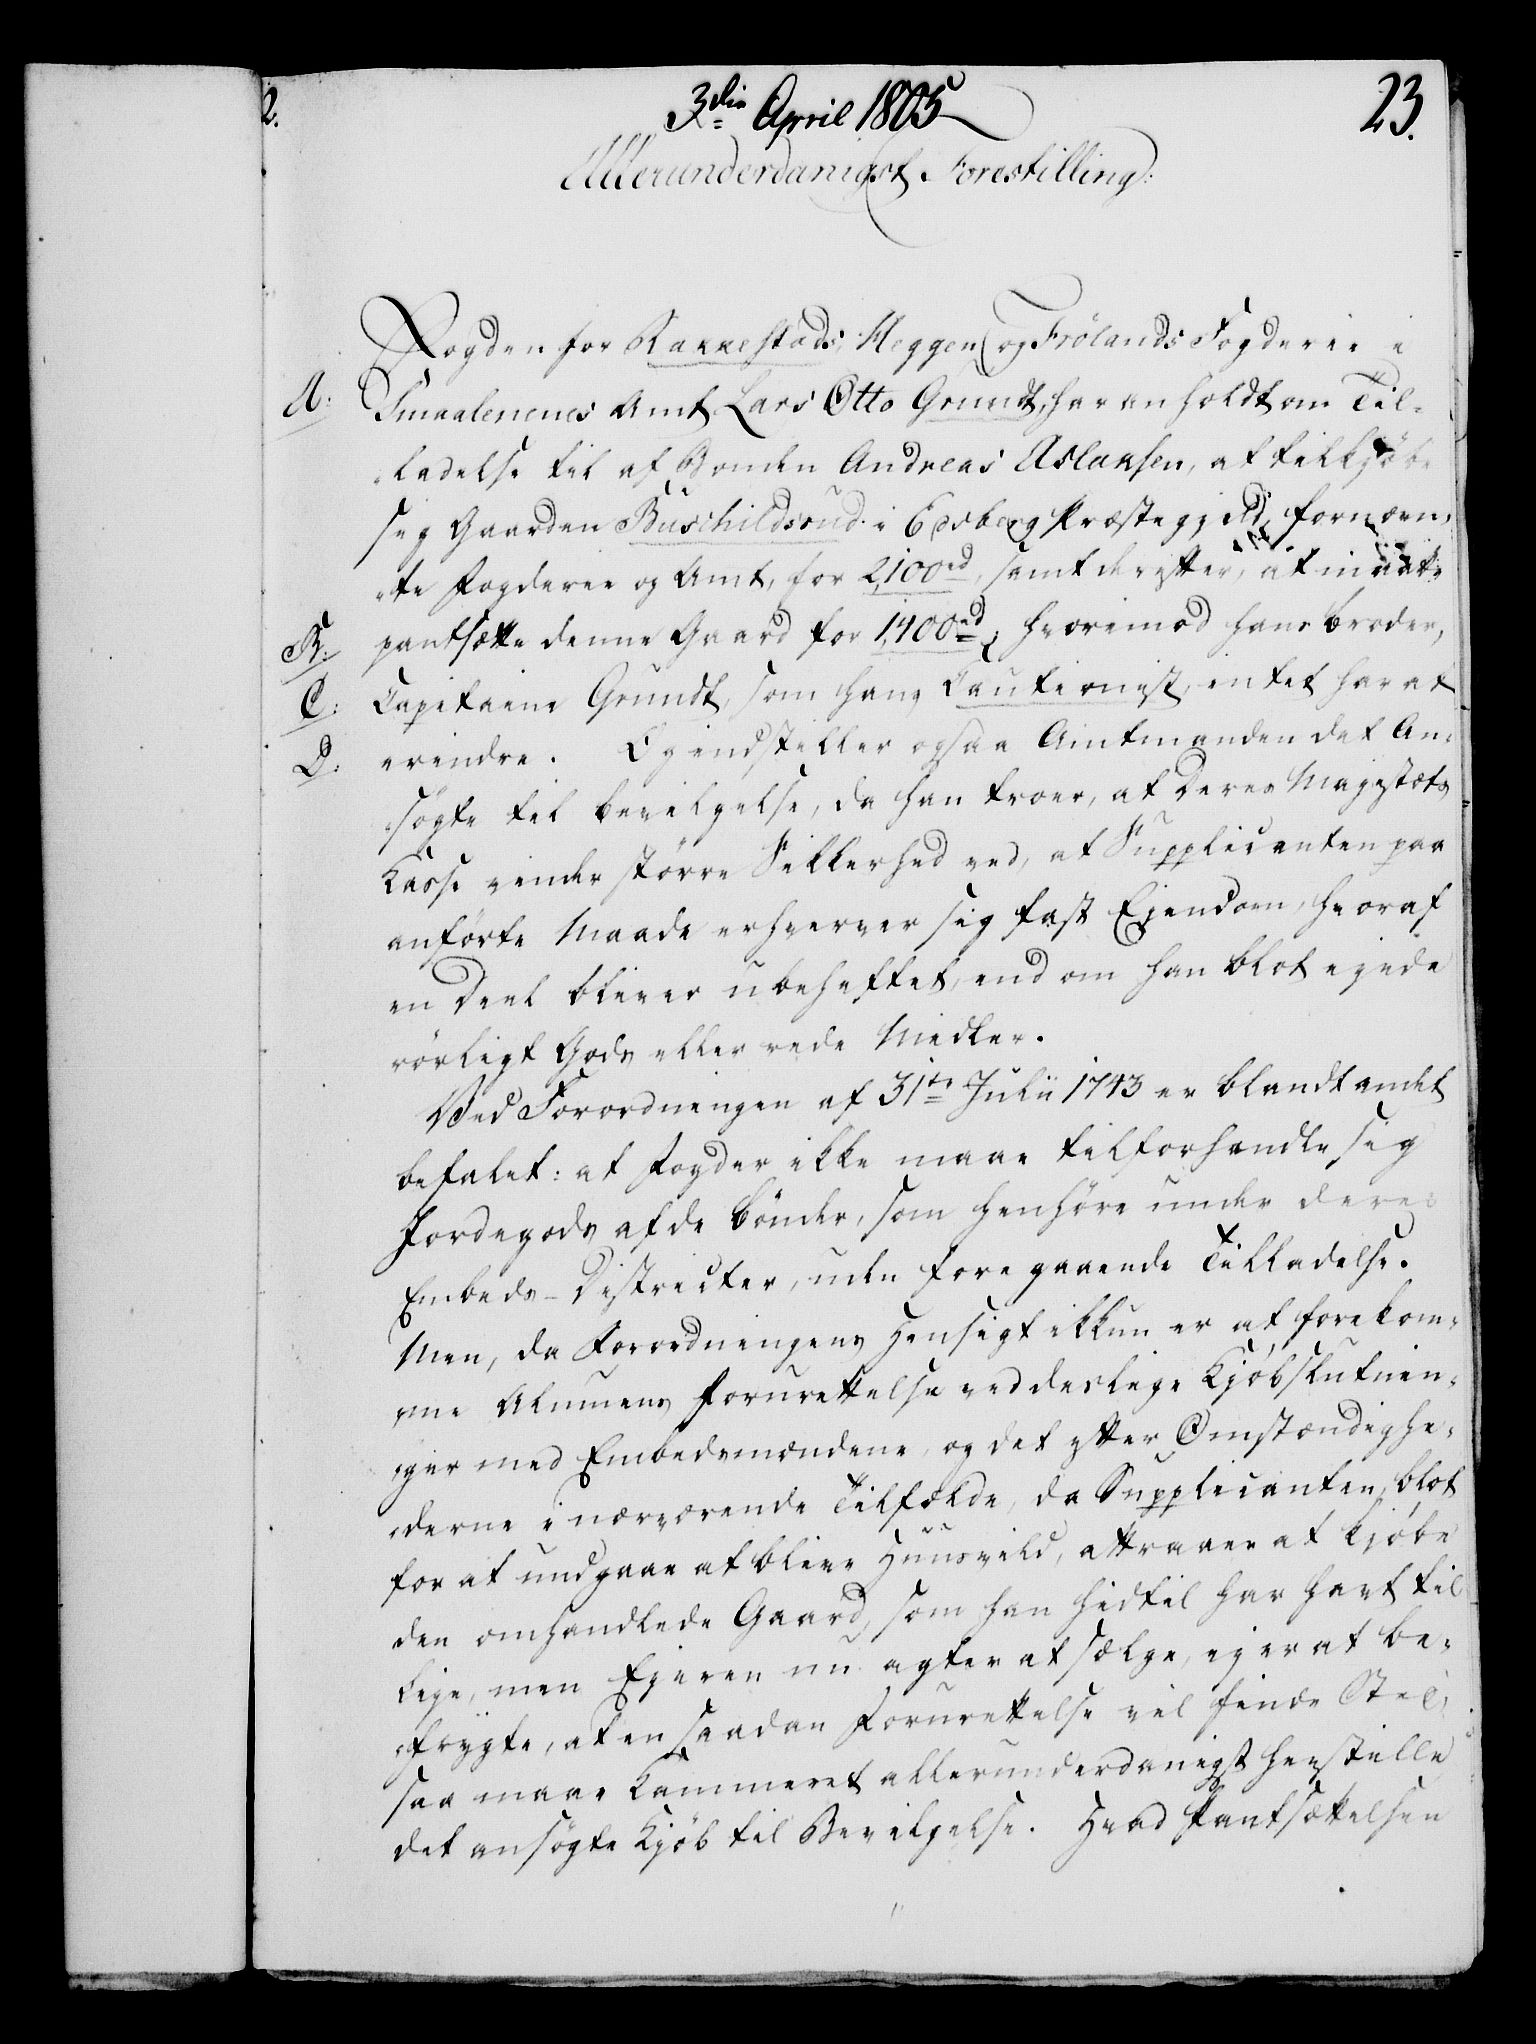 2.
3die April 1805
23.
Allerunderdanigst Forestilling:
Fogden for Rakkestads, Heggen og Frölands Fogderie i
A: Smaalenenes Amt Lars Otto Grundt, har anholdt om Til-
ladelse til af Bonden Andreas Aslaksen, at tilkjöbe
sig Gaarden Buschildsrud i Edsberg Præstegjeld, fornævn-
te Fogderie og Amt, for 2,100rd, samt derefter, at maatte
B: pantsætte denne Gaard for 1,400rd, hvorimod hans broder,
C: Capitaine Grundt, som hans Cautionist, intet har at
D: erindre. Og indstiller ogsaa Amtmanden det An-
søgte til bevilgelse, da han troer, at Deres Majestæts
Kasse vinder större Sikkerhed ved, at Supplicanten paa
anförte Maade erhverver sig fast Ejendom, hvoraf
en Deel bliver ubeheftet, end om han blot ejede
rörligt Gods eller rede Midler.
Ved Forordningen af 31te Julii 1743 er blandt andet
befalet: at Fogder ikke maae tilforhandle sig
Jordegods af de bönder, som henhöre under deres
Embeds-Districter, uden foregaaende Tilladelse.
Men, da Forordningens Hensigt ikkun er at forekom-
me Almuens Forurettelse ved deslige Kjöbslutnin-
ger med Embedsmændene, og det efter Omstændighe-
derne i nærværende Tilfælde, da Supplicanten, blot
for at undgaae at blive Huusvild, attraaer at kjöbe
den omhandlede Gaard, som han hidtil har havt til
Leje, men Ejeren nu agter at sælge, ej er at be-
frygte, at en saadan Forurettelse vil finde Sted,
saa maae Kammeret allerunderdanigst henstille
det ansögte Kjöb til Bevilgelse. Hvad Pantsættelsen